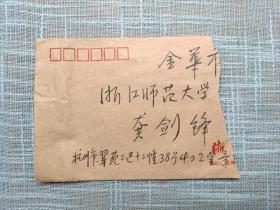 金華市
浙江师范大学
龚剑锋
杭州市翠苑三区十二幢38号402室